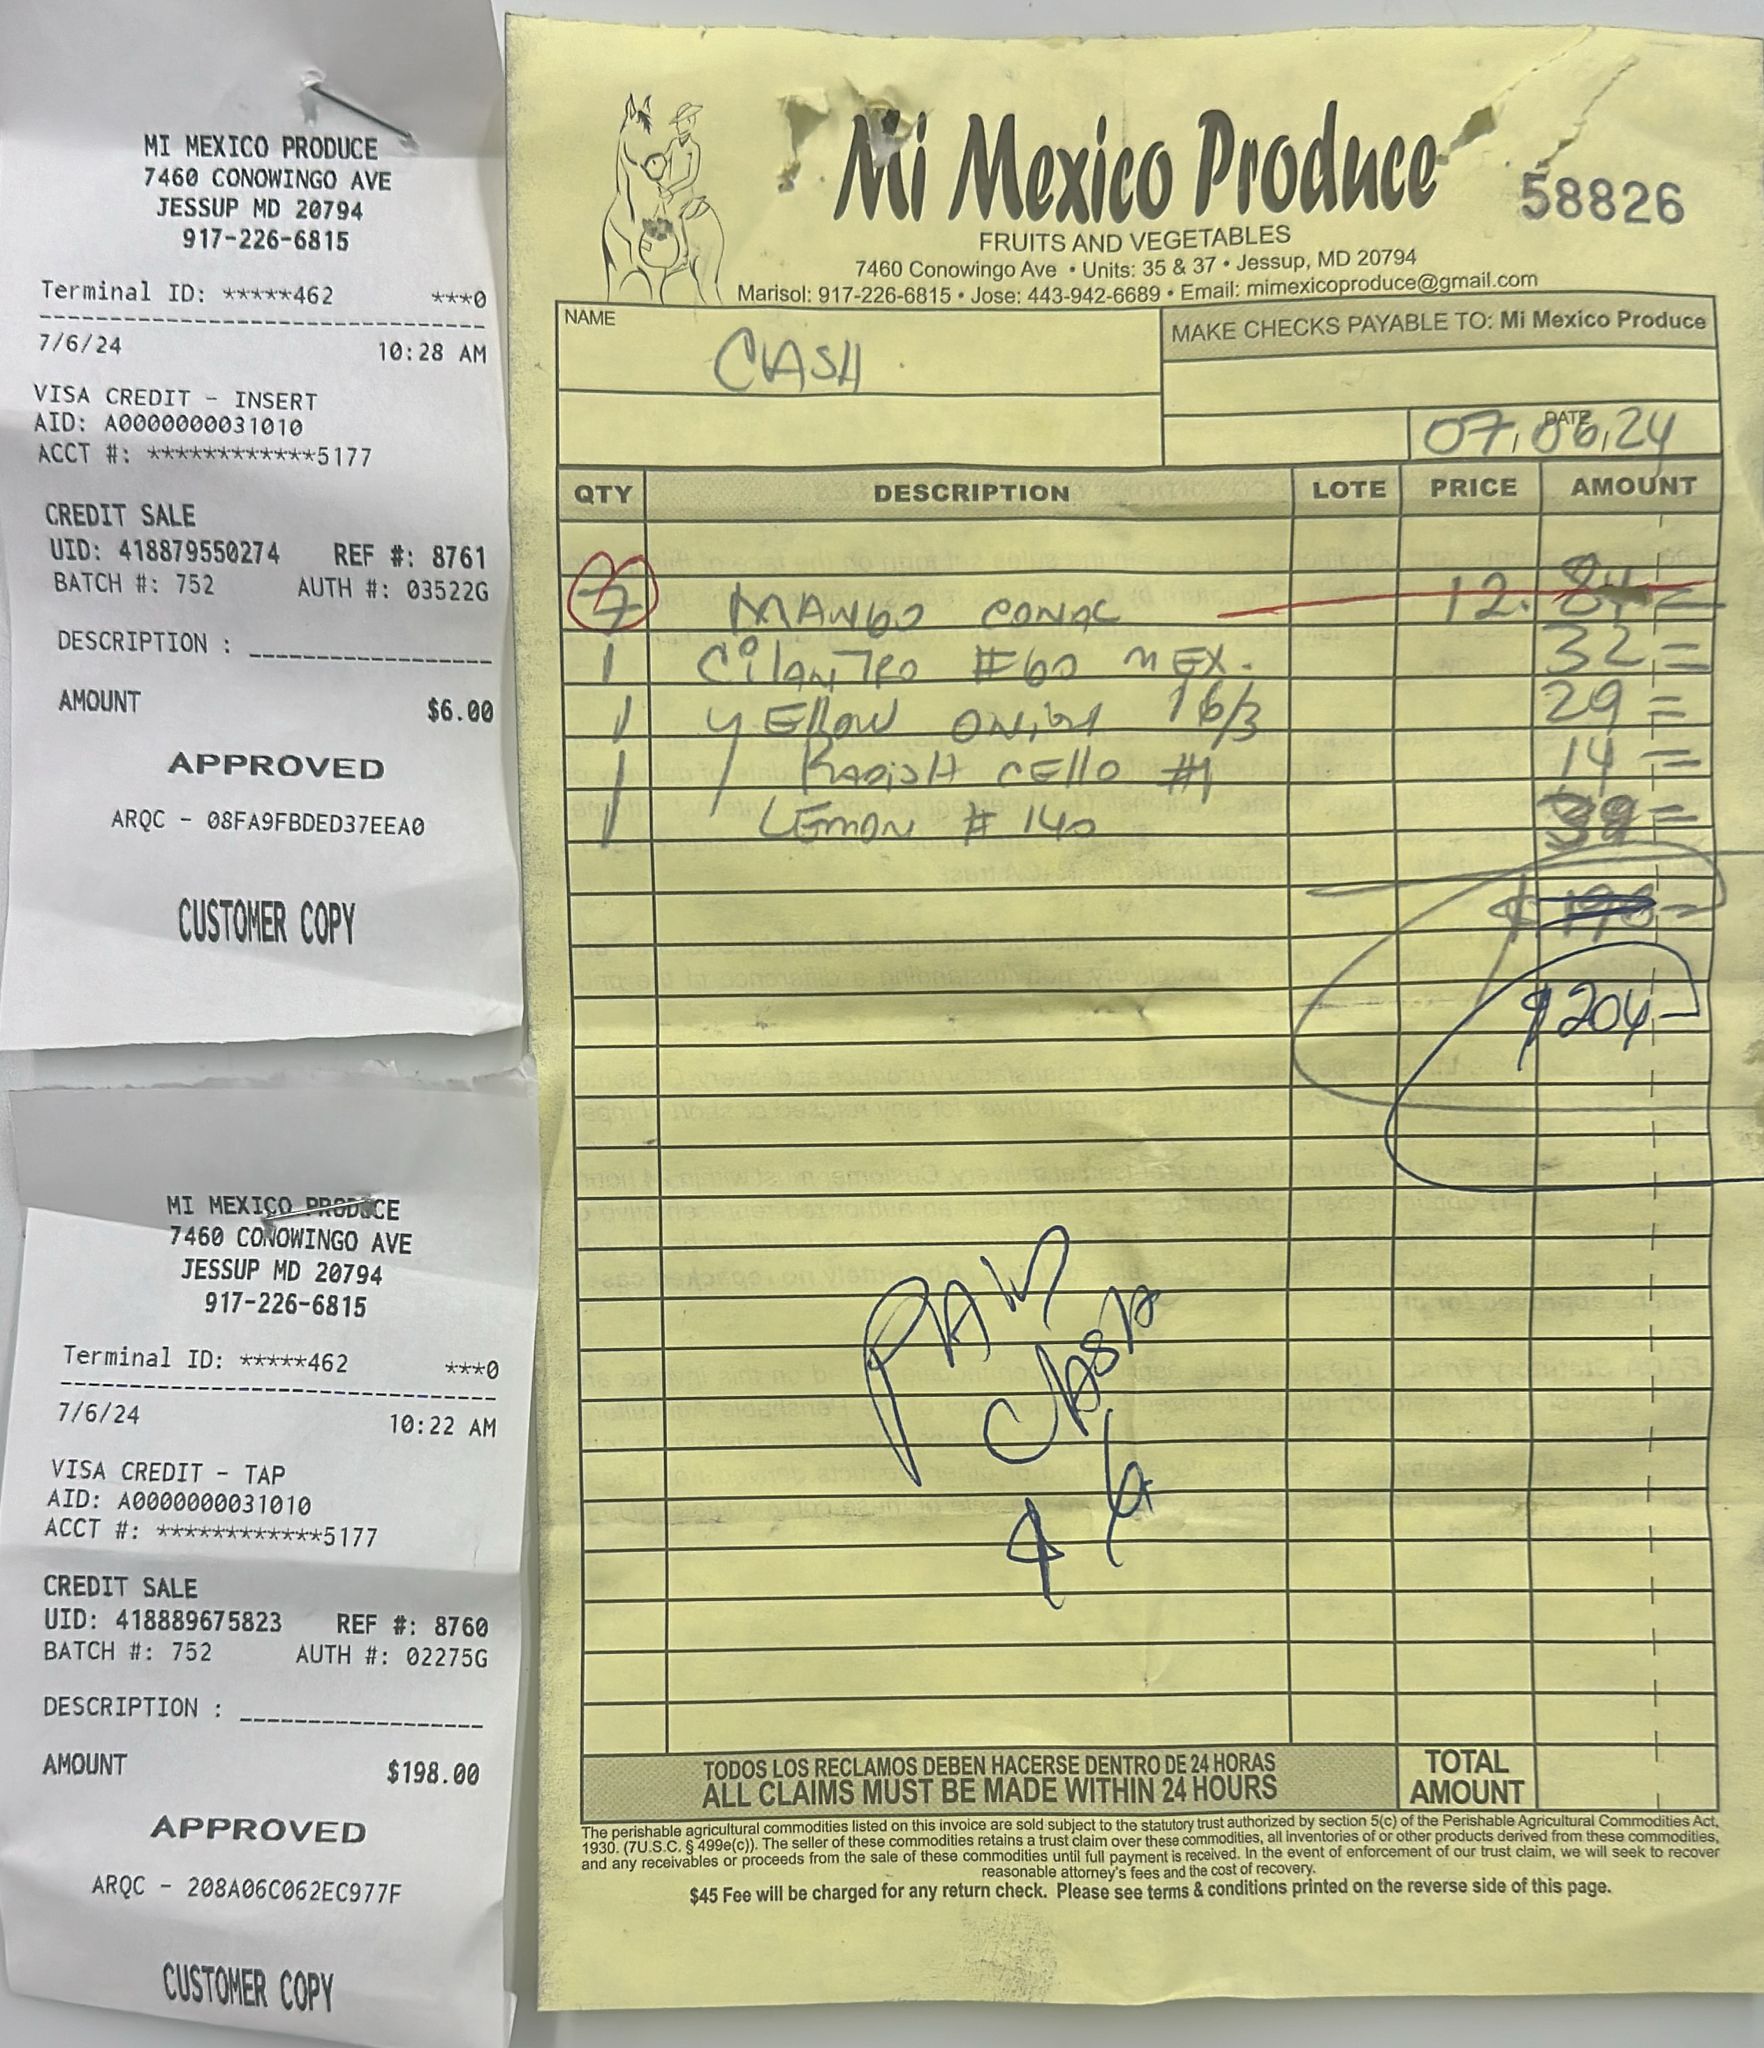 MI MEXICO PRODUCE
7460 CONOWINGO AVE
JESSUP MD 20794
917-226-6815
Terminal ID: *****462 ***0
7/6/24 10:28 AM
VISA CREDIT - INSERT
AID: A0000000031010
ACCT #: ************5177
CREDIT SALE
UID: 418879550274 REF #: 8761
BATCH #: 752 AUTH #: 03522G
DESCRIPTION :
AMOUNT $6.00
APPROVED
ARQC - 08FA9FBDED37EEA0
CUSTOMER COPY
MI MEXICO PRODUCE
7460 CONOWINGO AVE
JESSUP MD 20794
917-226-6815
Terminal ID: *****462 ***0
7/6/24 10:22 AM
VISA CREDIT - TAP
AID: A0000000031010
ACCT #: ************5177
CREDIT SALE
UID: 418889675823 REF #: 8760
BATCH #: 752 AUTH #: 02275G
DESCRIPTION :
AMOUNT $198.00
APPROVED
ARQC - 208A06C062EC977F
CUSTOMER COPY
Mi Mexico Produce
58826
FRUITS AND VEGETABLES
7460 Conowingo Ave • Units: 35 & 37 • Jessup, MD 20794
Marisol: 917-226-6815 • Jose: 443-942-6689 • Email: mimexicoproduce@gmail.com
NAME CASH
MAKE CHECKS PAYABLE TO: Mi Mexico Produce
DATE 07,06,24
QTY DESCRIPTION LOTE PRICE AMOUNT
7 MANGO CONAC 12. 84=
1 CilANTRO #60 MEX. 32=
1 YEllow ONION 16/3 29=
1 RADISH CELLO #1 14=
1 LEMON # 140 39=
$ 198-
$204-
PAID
$ 6
TODOS LOS RECLAMOS DEBEN HACERSE DENTRO DE 24 HORAS
ALL CLAIMS MUST BE MADE WITHIN 24 HOURS
TOTAL AMOUNT
The perishable agricultural commodities listed on this invoice are sold subject to the statutory trust authorized by section 5(c) of the Perishable Agricultural Commodities Act,
1930. (7U.S.C. § 499e(c)). The seller of these commodities retains a trust claim over these commodities, all inventories of or other products derived from these commodities,
and any receivables or proceeds from the sale of these commodities until full payment is received. In the event of enforcement of our trust claim, we will seek to recover
reasonable attorney's fees and the cost of recovery.
$45 Fee will be charged for any return check. Please see terms & conditions printed on the reverse side of this page.